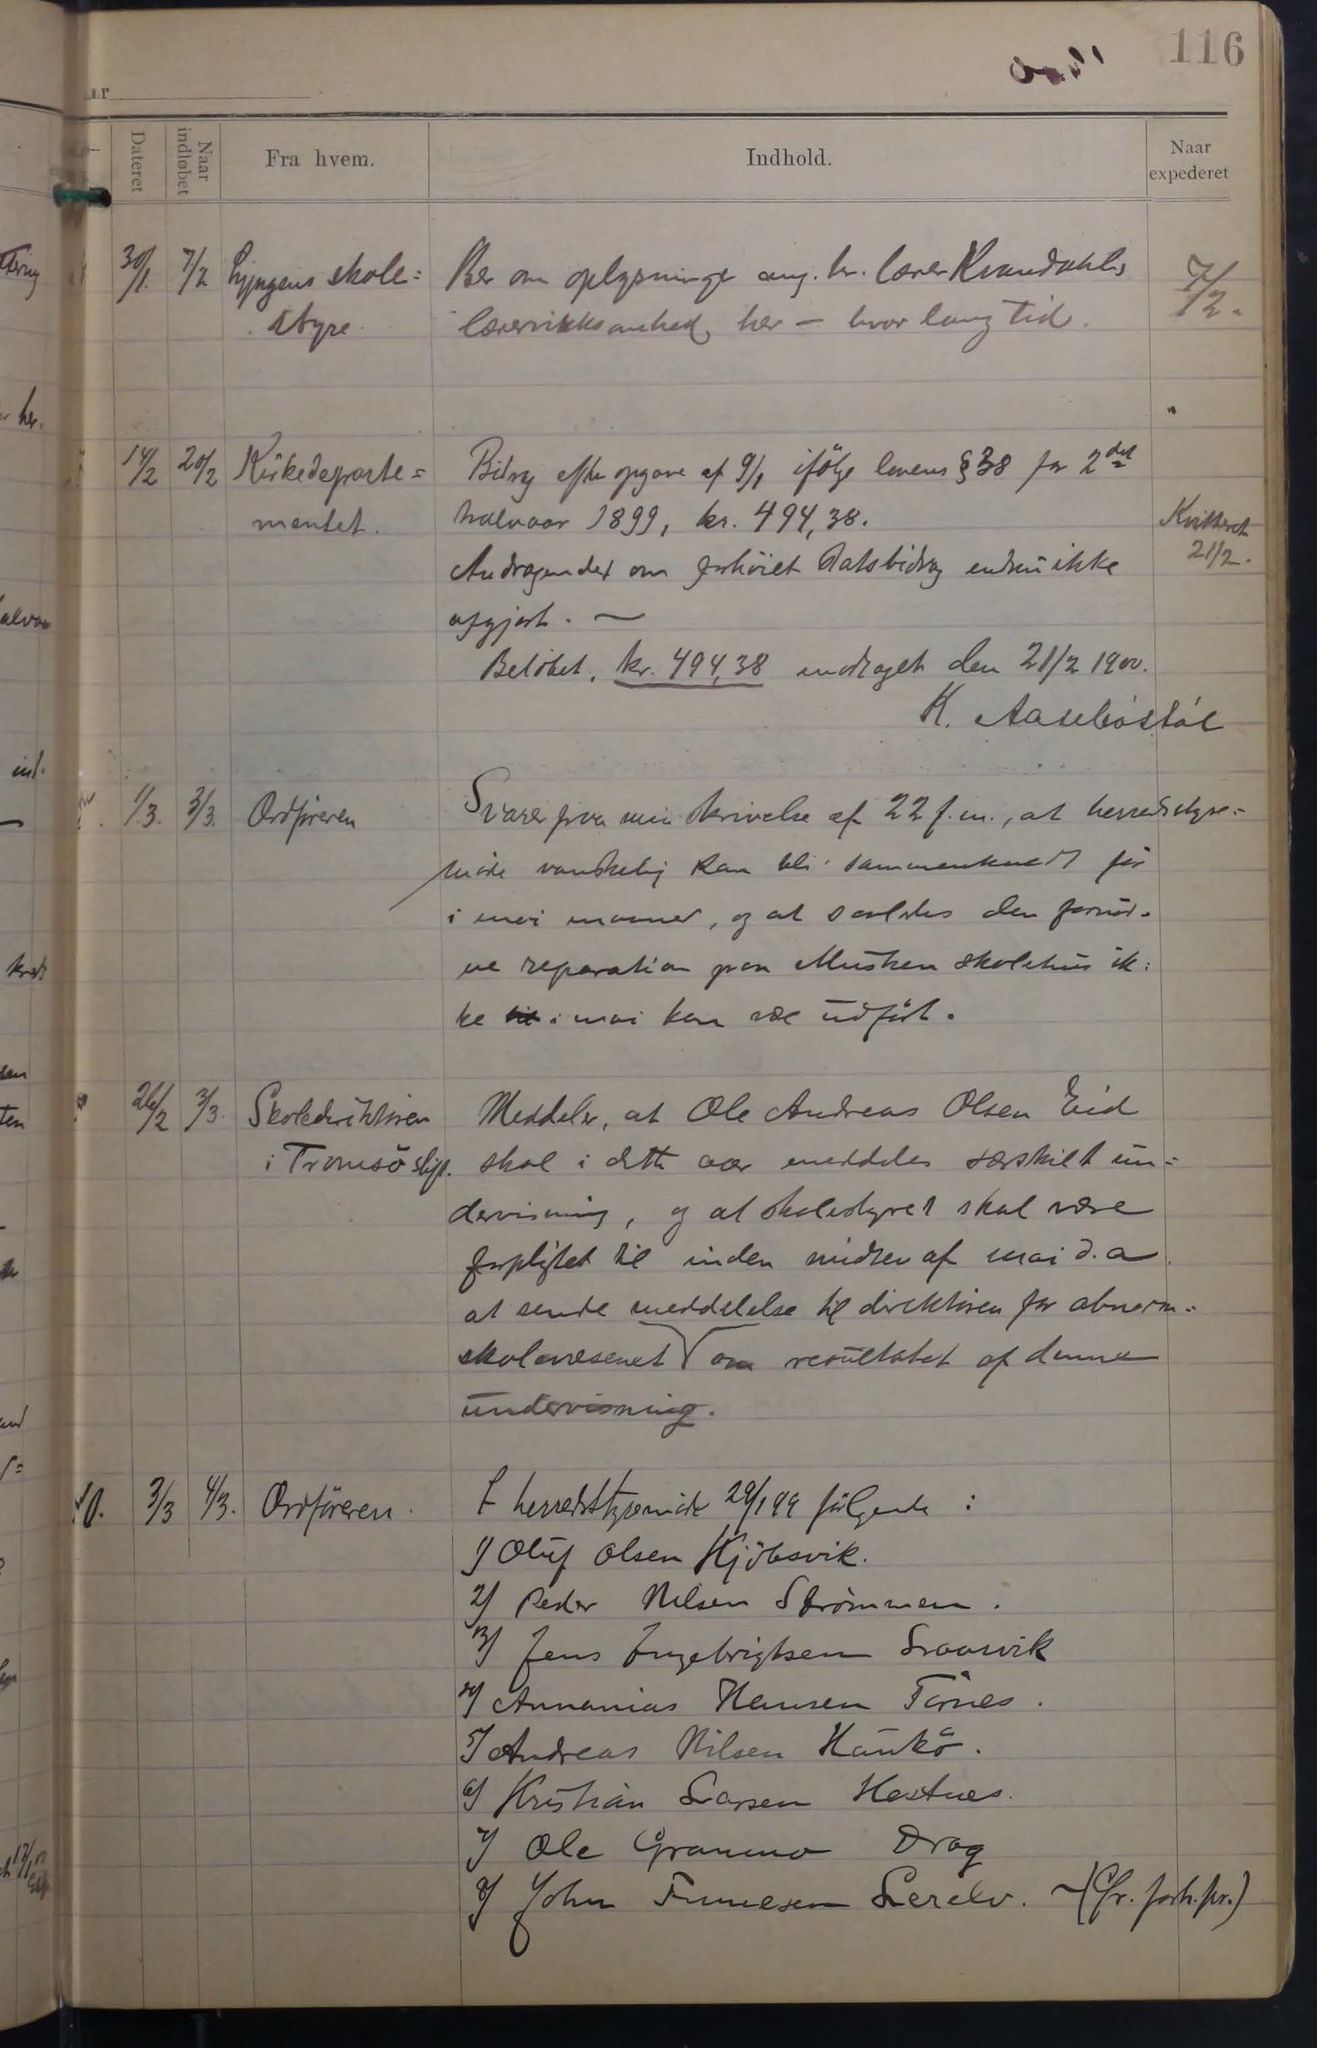 116
Dateret
Naar indløbet
Fra hvem.
Indhold.
Naar expederet
30/1. 7/2 Lyngens skole=
styre.
Ber om oplysninger ang. hr. lærer Kvandahls
lærervirksomhed her – hvor lang tid.
7/2.
14/2 20/2 Kirkedeparte=
mentet.
Bidrag efter opgave af 9/1 ifölge lovens § 38 for 2det
halvaar 1899, kr. 494,38.
Andragendet om forhöiet statsbidrag endnu ikke
afgjort. —
Belöbet, kr. 494,38 modtaget den 21/2 1900.
K. Aaseböstöl
Kvitteret
21/2.
1/3. 3/3. Ordföreren
Svarer paa min skrivelse af 22 f.m., at herredsstyre=
möde vanskelig kan bli sammenkaldt för
i mai maaned, og at saaledes den fornöd=
ne reparation paa Musken skolehus ik=
ke i mai kan være udfört.
26/2 3/3. Skoledirektören
i Tromsö stift.
Meddeler, at Ole Andreas Olsen Eid
skal i dette aar meddeles særskilt un=
dervisning, og at skolestyret skal være
forpligtet til inden midten af mai d.a.
at sende meddelelse til direktören for abnorm=
skolevæsenet om resultatet af denne
undervisning.
10. 3/3 4/3. Ordföreren.
I herredsstyremöde 29/1 99 fölgende :
1) Oluf Olsen Kjöbsvik.
2) Peder Nilsen Strömmen.
3) Jens Ingebrigtsen
4) Annanias Hansen Törnes.
5) Andreas Nilsen Haukö.
6) Kristian Larsen Hestnes.
7) Ole Grammo Drag
8) John Lerelv. – (Cfr. forh. pr.)